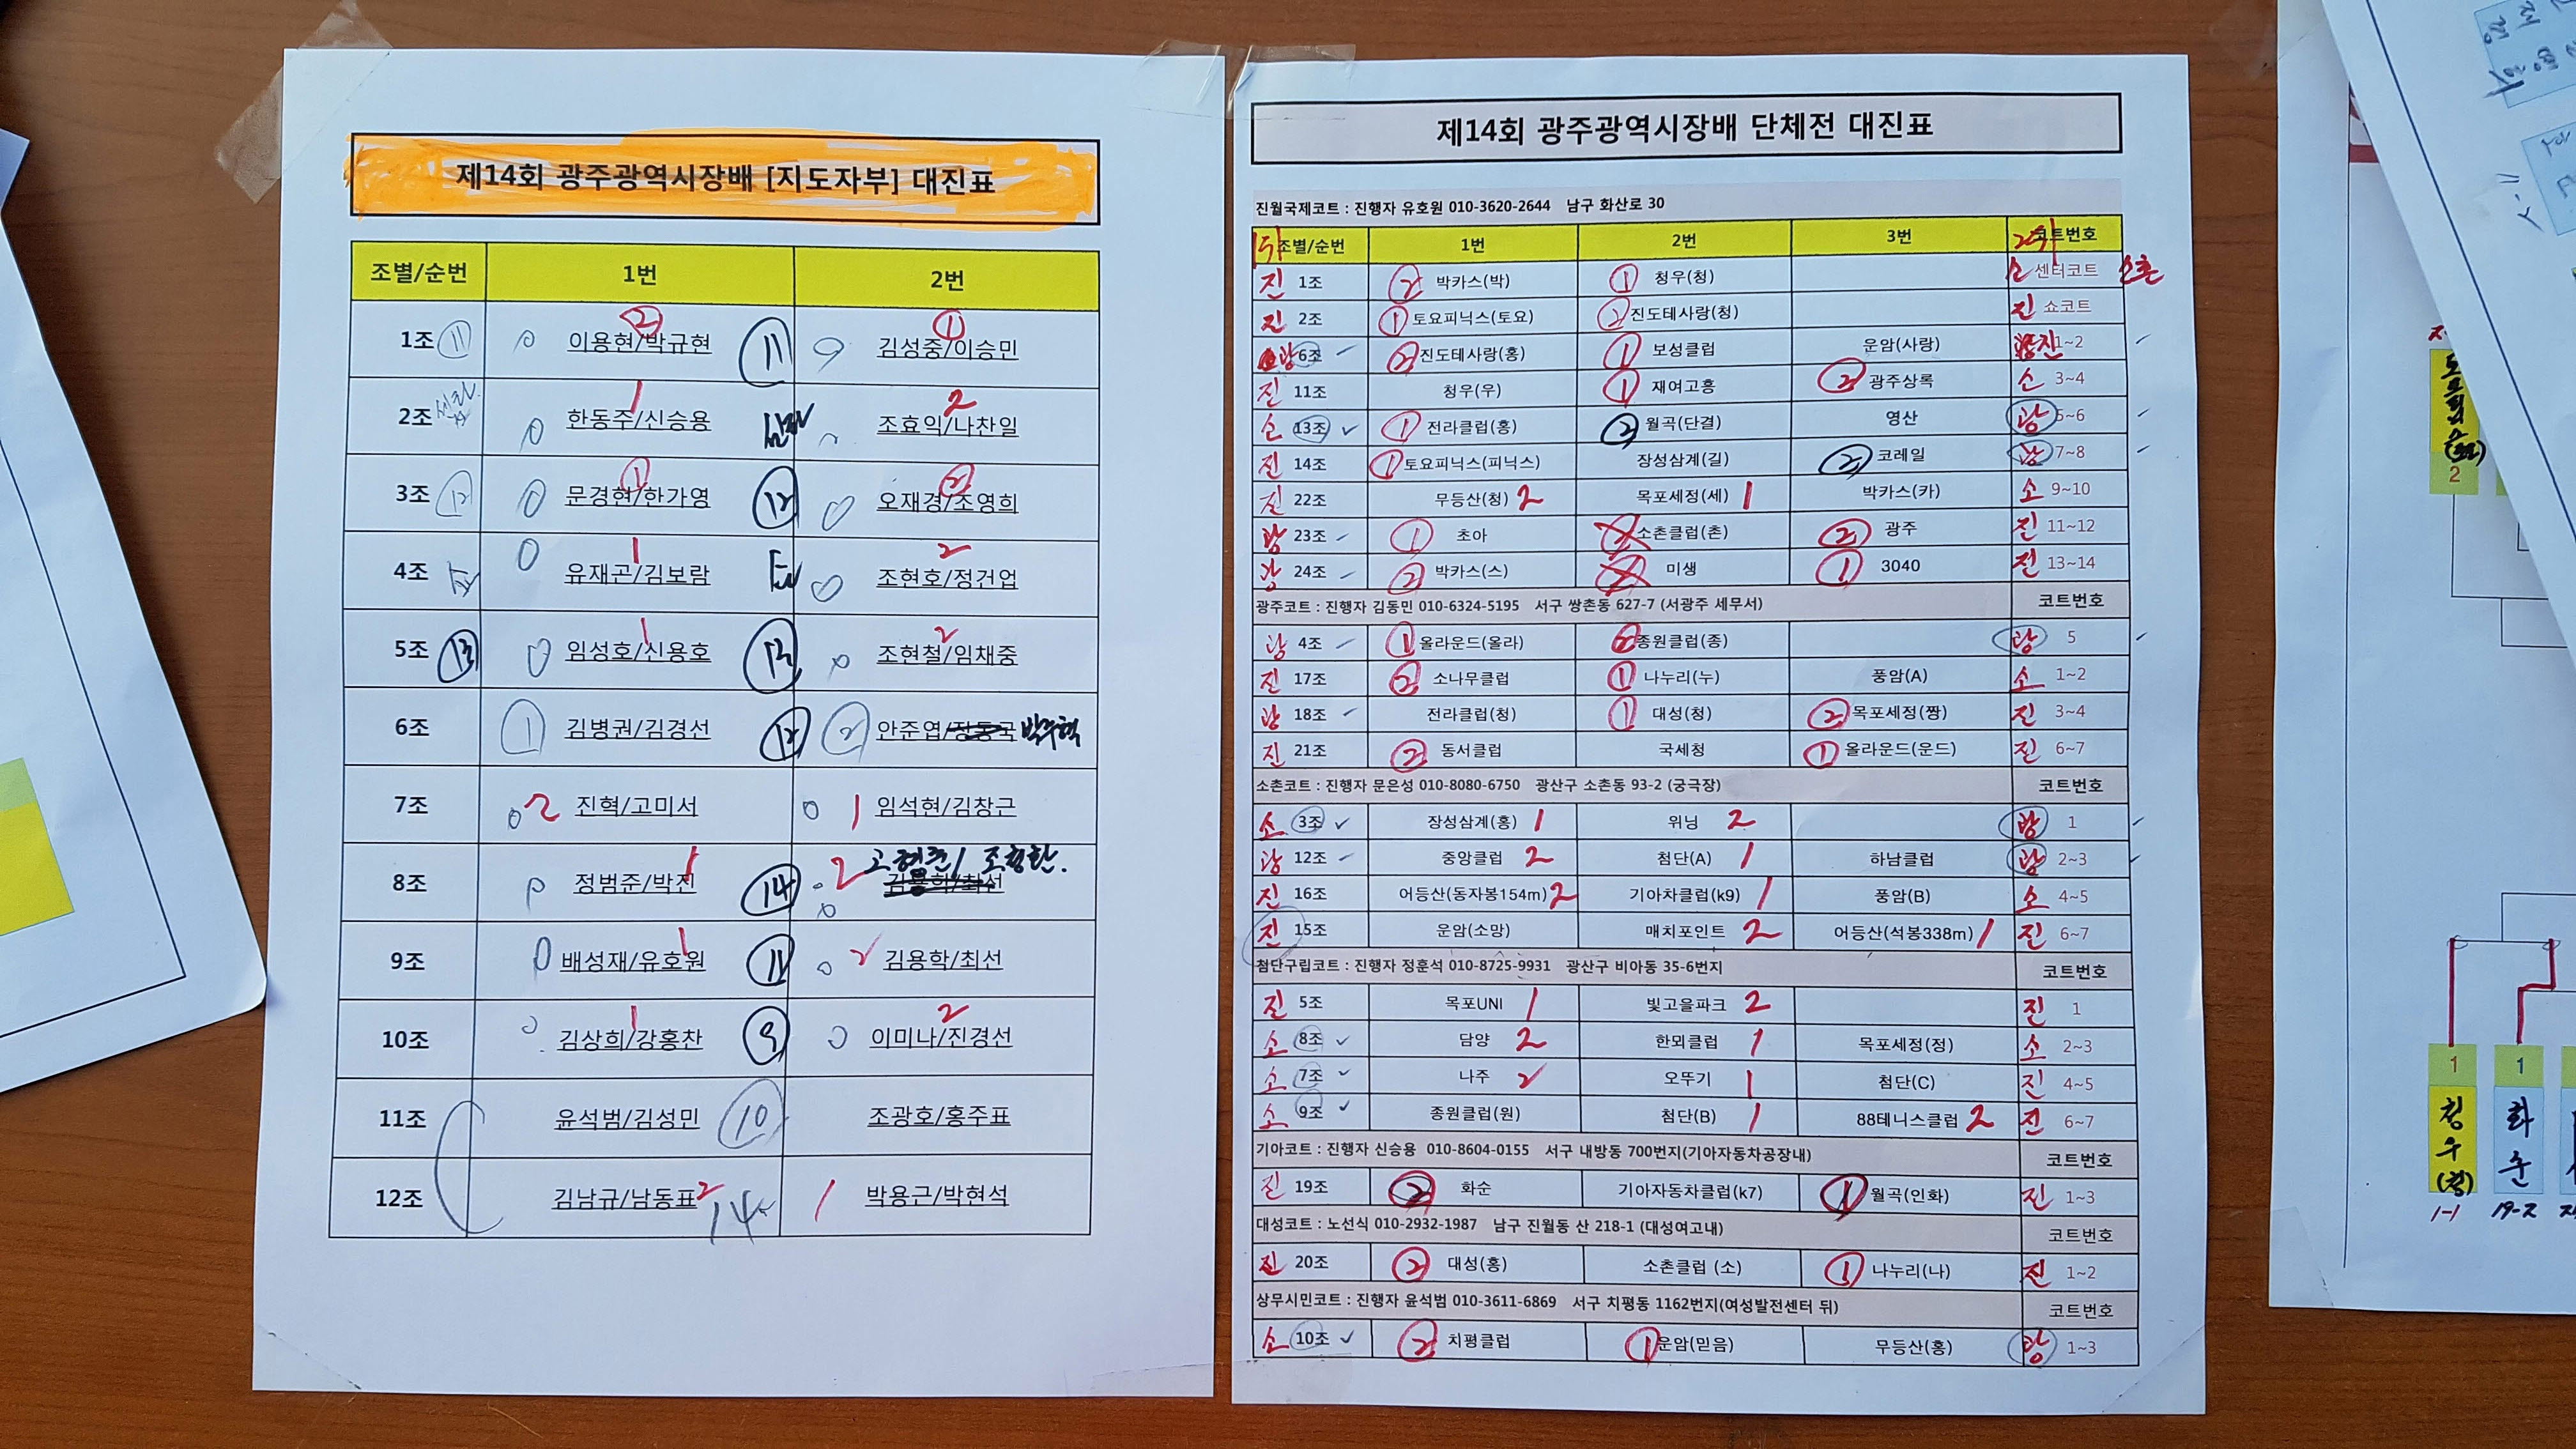 제14회 광주광역시장배 [지도자부] 대진표
조별/순번 1번 2번
1조 11 이용현/박규현 2 11 김성중/이승민 1
2조 한동주/신승용 1 조효익/나찬일 2
3조 12 문경현/한가영 1 12 오재경/조영희 2
4조 유재곤/김보람 1 조현호/정건업 2
5조 13 임성호/신용호 1 13 조현철/임채중 2
6조 1 김병권/김경선 12 2 안준엽/정동국 박주혁
7조 2 진혁/고미서 1 임석현/김창근
8조 정범준/박진 1 14 2 김용학/최선
9조 배성재/유호원 1 11 2 김용학/최선
10조 김상희/강홍찬 1 9 이미나/진경선 2
11조 윤석범/김성민 10 조광호/홍주표
12조 김남규/남동표 2 14 1 박용근/박현석
제14회 광주광역시장배 단체전 대진표
진월국제코트 : 진행자 유호원 010-3620-2644 남구 화산로 30
조별/순번 1번 2번 3번 코트번호
진 1조 2 박카스(박) 1 청우(청) 소 센터코트 소촌
진 2조 1 토요피닉스(토요) 2 진도테사랑(청) 진 쇼코트
광 6조 2 진도테사랑(홍) 1 보성클럽 운암(사랑) 진 1~2
진 11조 청우(우) 1 재여고흥 2 광주상록 소 3~4
소 13조 1 전라클럽(홍) 2 월곡(단결) 영산 광 5~6
진 14조 1 토요피닉스(피닉스) 장성삼계(길) 2 코레일 광 7~8
진 22조 무등산(청) 2 목포세정(세) 1 박카스(카) 소 9~10
광 23조 1 초아 소촌클럽(촌) 2 광주 진 11~12
광 24조 2 박카스(스) 미생 1 3040 진 13~14
광주코트 : 진행자 김동민 010-6324-5195 서구 쌍촌동 627-7 (서광주 세무서) 코트번호
광 4조 1 올라운드(올라) 2 종원클럽(종) 광 5
진 17조 2 소나무클럽 1 나누리(누) 풍암(A) 소 1~2
광 18조 전라클럽(청) 1 대성(청) 2 목포세정(짱) 진 3~4
진 21조 2 동서클럽 국세청 1 올라운드(운드) 진 6~7
소촌코트 : 진행자 문은성 010-8080-6750 광산구 소촌동 93-2 (궁극장) 코트번호
소 3조 장성삼계(홍) 1 위닝 2 광 1
광 12조 중앙클럽 2 첨단(A) 1 하남클럽 광 2~3
진 16조 어등산(동자봉154m) 2 기아차클럽(k9) 1 풍암(B) 소 4~5
진 15조 운암(소망) 매치포인트 2 어등산(석봉338m) 1 진 6~7
첨단구립코트 : 진행자 정훈석 010-8725-9931 광산구 비아동 35-6번지 코트번호
진 5조 목포UNI 1 빛고을파크 2 진 1
소 8조 담양 2 한뫼클럽 1 목포세정(정) 소 2~3
소 7조 나주 2 오뚜기 1 첨단(C) 진 4~5
소 9조 종원클럽(원) 첨단(B) 1 88테니스클럽 2 진 6~7
기아코트 : 진행자 신승용 010-8604-0155 서구 내방동 700번지(기아자동차공장내) 코트번호
진 19조 2 화순 기아자동차클럽(k7) 1 월곡(인화) 진 1~3
대성코트 : 노선식 010-2932-1987 남구 진월동 산 218-1 (대성여고내) 코트번호
진 20조 2 대성(홍) 소촌클럽 (소) 1 나누리(나) 진 1~2
상무시민코트 : 진행자 윤석범 010-3611-6869 서구 치평동 1162번지(여성발전센터 뒤) 코트번호
소 10조 2 치평클럽 1 운암(믿음) 무등산(홍) 광 1~3
2
1 1
청우(청) 화순
1-1 19-2